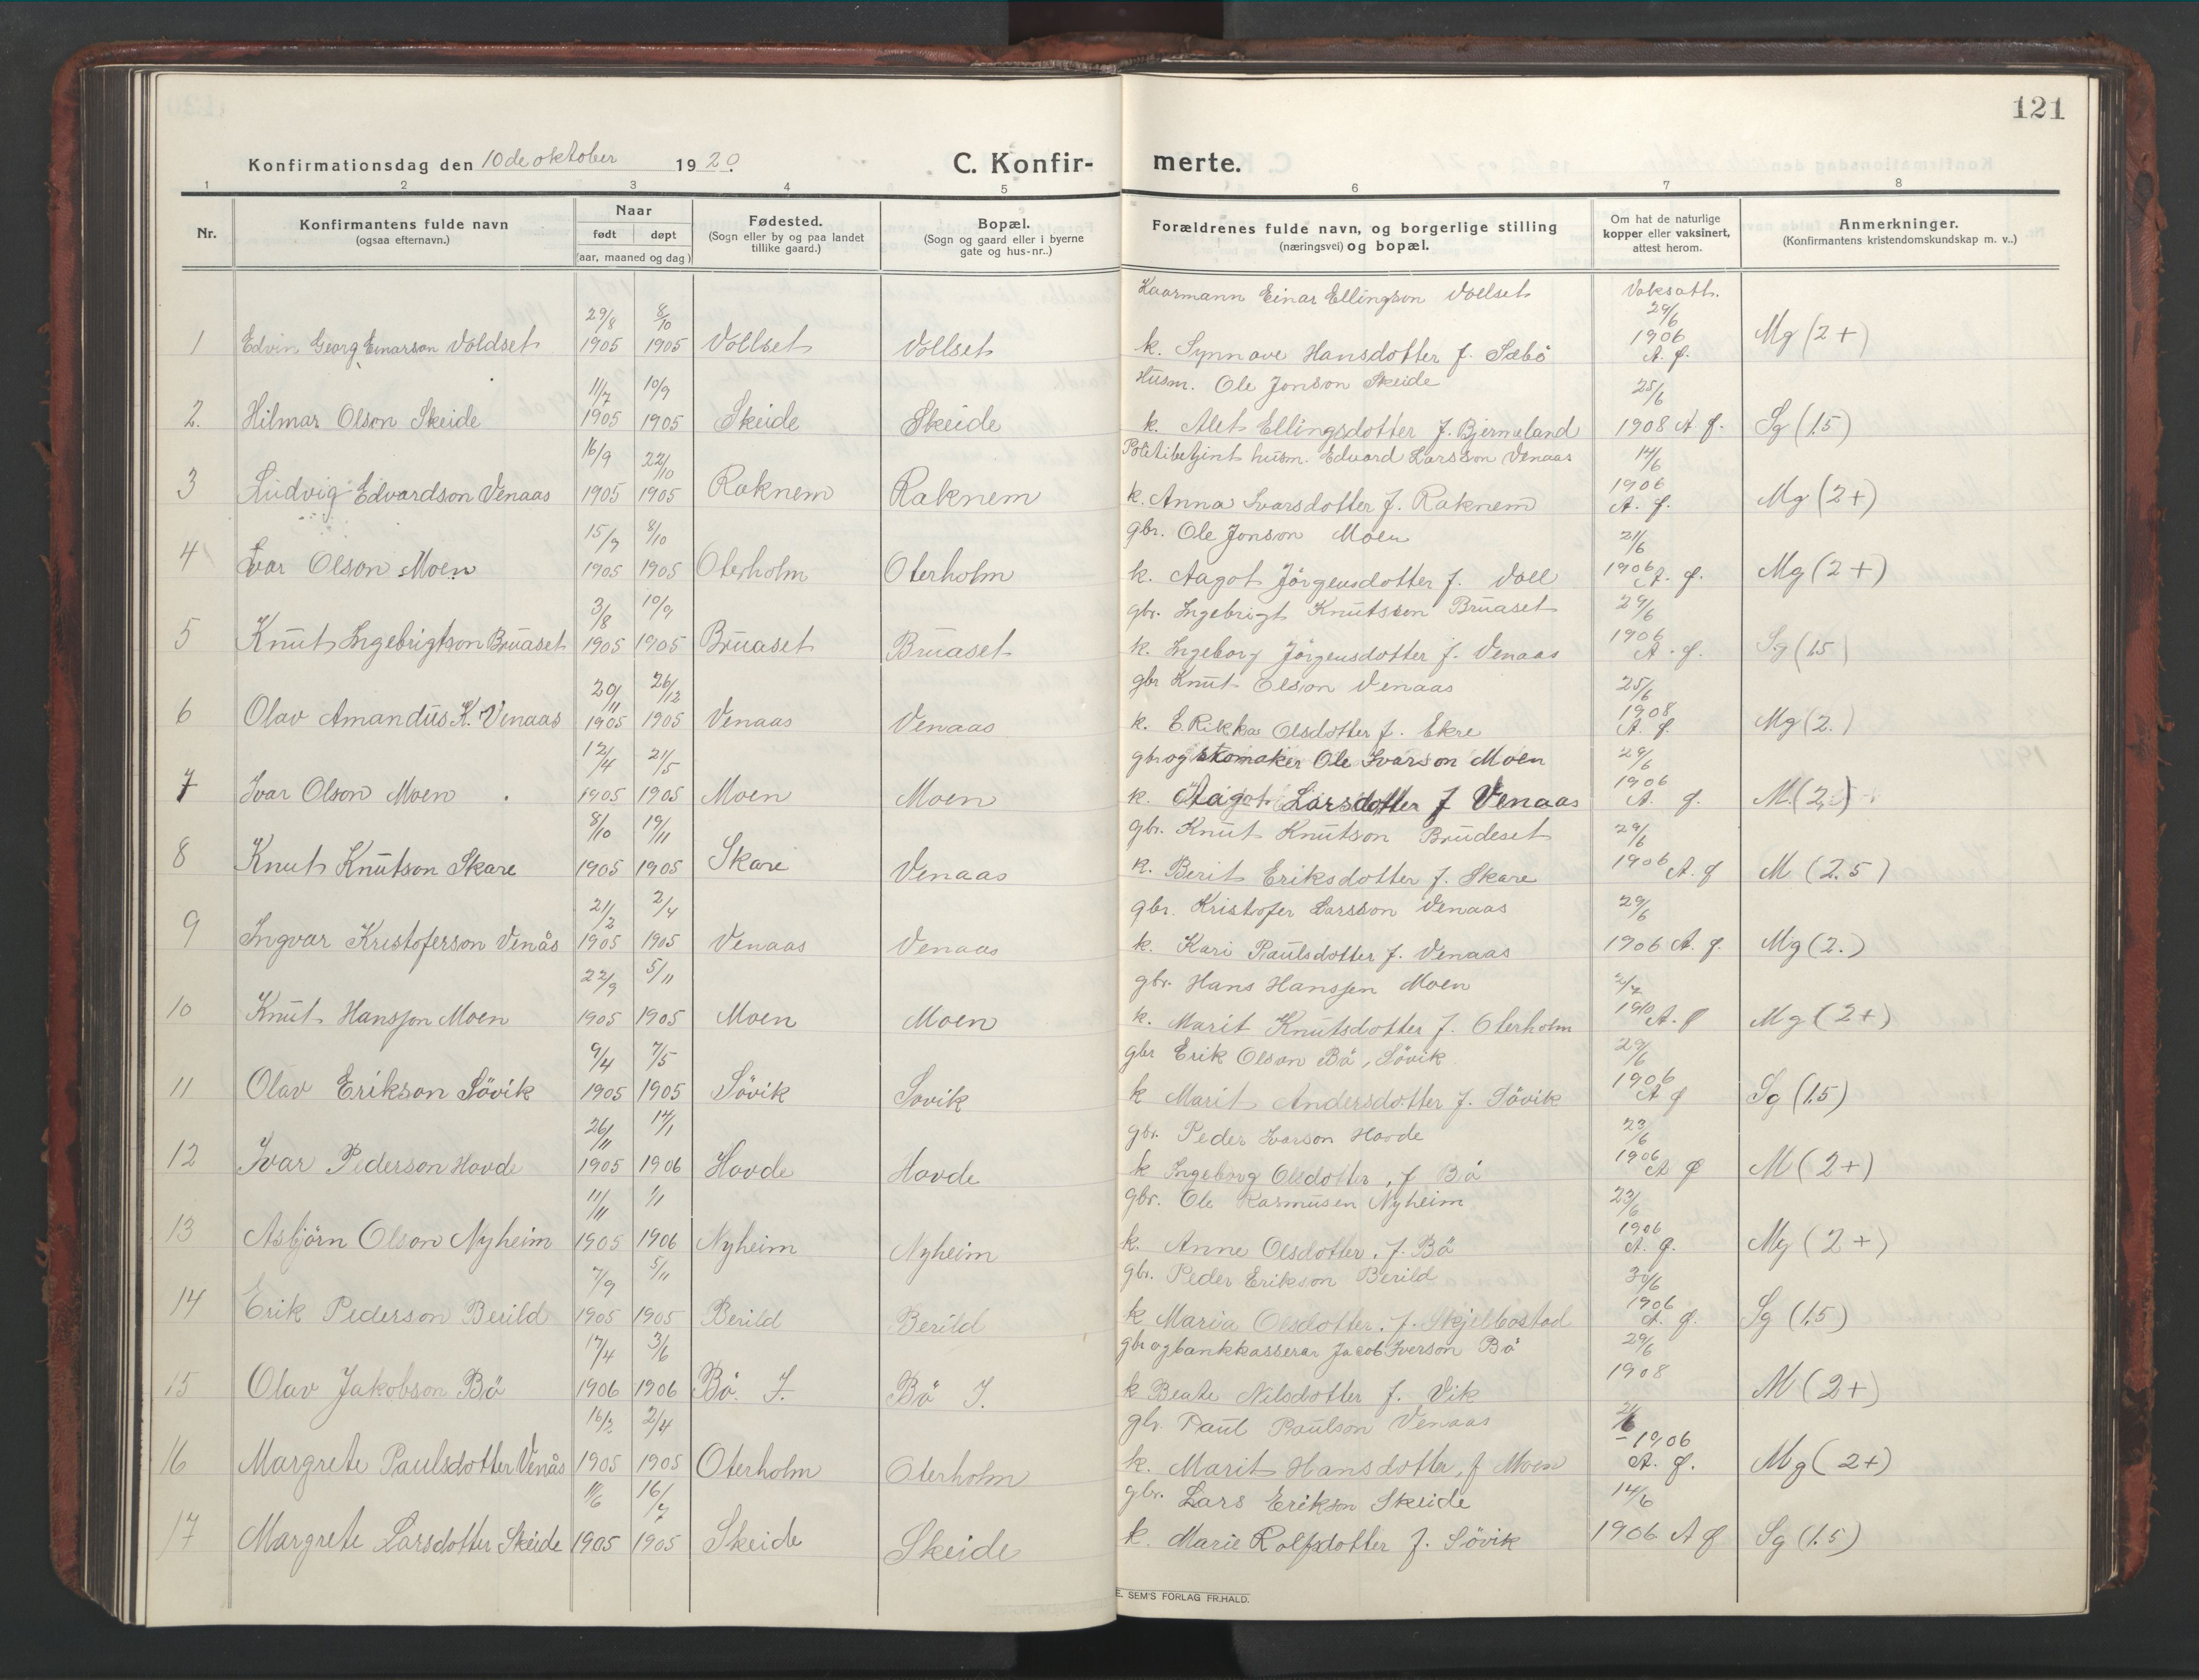 121
Konfirmationsdag den 10de oktober 1920.
C. Konfirmerte.
1 2 3 4 5 6 7 8
Nr.
Konfirmantens fulde navn
(ogsaa efternavn.)
Naar
født døpt
(aar, maaned og dag)
Fødested.
(Sogn eller by og paa landet
tillike gaard.)
Bopæl.
(Sogn og gaard eller i byerne
gate og hus-nr..)
Forældrenes fulde navn, og borgerlige stilling
(næringsvei) og bopæl.
Om hat de naturlige
kopper eller vaksinert,
attest herom.
Anmerkninger.
(Konfirmantens kristendomskundskap m. v..)
Kaarmann Einar Ellingson Vollset Vaksatt.
29/8 8/10 29/6
1 Edvin Georg Einarson Voldset 1905 1905 Vollset Vollset k. Synnøve Hansdotter f. Sæbö 1906 A. f. Mg (2+)
11/7 10/9 Husm. Ole Jonson Skeide 25/6
2. Hilmar Olson Skeide 1905 1905 Skeide Skeide k. Alet Ellingsdotter f. Bjermeland 1908 A f. Sg (1.5)
16/9 22/10 Politibetjent husm. Edvard Larsson Venaas 14/6
3 Ludvig Edvardson Venaas 1905 1905 Raknem Raknem k. Anna Ivarsdotter f. Raknem 1906 A. f. Mg (2+)
15/9 8/10 gbr. Ole Jonson Moen 21/6
4 Ivar Olson Moen 1905 1905 Oterholm Oterholm k. Aagot Jörgensdotter f. Voll 1906 A. f. Mg (2+)
3/8 10/9 gbr. Ingebrigt Knutsson Bruaset 29/6
5 Knut Ingebrigtson Bruaset 1905 1905 Bruaset Bruaset k. Ingeborg Jörgensdotter f. Venaas 1906 A. f. Sg (1.5)
20/11 26/12 gbr Knut Olson Venaas 25/6
6 Olav Amandus K. Venaas 1905 1905 Venaas Venaas k. E Rikka Olsdotter f. Ekre 1908 A. f. Mg (2.)
12/4 21/5 gbr og skomaker Ole Ivarson Moen 29/6
7 Ivar Olson Moen 1905 1905 Moen Moen k. Aagot Larsdotter f Venaas 1906 A. f. M. (2.)
8/10 19/11 gbr. Knut Knutson Brudeset 29/6
8 Knut Knutson Skare 1905 1905 Skare Venaas k. Berit Eriksdotter f. Skare 1906 A. f M (2.5)
21/2 2/4 gbr. Kristofer Larsson Venaas 29/6
9 Ingvar Kristoferson Venås 1905 1905 Venaas Venaas k. Kari Paulsdotter f. Venaas 1906 A. f. Mg (2.)
22/9 5/11 gbr. Hans Hanssen Moen 2/7
10 Knut Hansson Moen 1905 1905 Moen Moen k. Marit Knutsdotter f. Oterholm 1910 A. f Mg (2+)
9/4 7/5 gbr Erik Olson Bö, Sövik 29/6
11 Olav Erikson Sövik 1905 1905 Sövik Sovik k Marit Andersdotter f. Sövik 1906 A f Sg (1.5)
26/11 14/1 gbr. Peder Ivarson Hovde 23/6
12 Ivar Pederson Hovde 1905 1906 Hovde Hovde k Ingeborg Olsdotter, f Bö 1906 A f M (2+)
11/11 1/1 gbr. Ole Rasmusen Nyheim 23/6
13 Asbjörn Olson Nyheim 1905 1906 Nyheim Nyheim k. Anne Olsdotter. f. Bö 1906 A. f. Mg (2+)
7/9 5/11 gbr. Peder Erikson Berild 30/6
14 Erik Pederson Berild 1905 1905 Berild Berild k Maria Olsdotter. f. Skjelbostad 1906 A. f. Sg (1.5)
17/4 3/6 gbr og bankkasserar Jacob Iverson Bö 29/6
15 Olav Jakobson Bö 1906 1906 Bö. I. Bö I. k Beate Nilsdotter f. Vik 1908 M (2+)
16/2 2/4 gbr. Paul Paulson Venaas 21/6
16 Margrete Paulsdotter Venås 1905 1905 Oterholm Oterholm k. Marit Hansdotter, f Moen 1906 A. f. Mg (2+)
11/6 16/7 gbr. Lars Erikson Skeide 14/6
17 Margrete Larsdotter Skeide 1905 1905 Skeide Skeide k. Marie Rolfsdotter f. Sövik 1906 A f Sg (1.5)
E. SEM'S FORLAG FR.HALD.